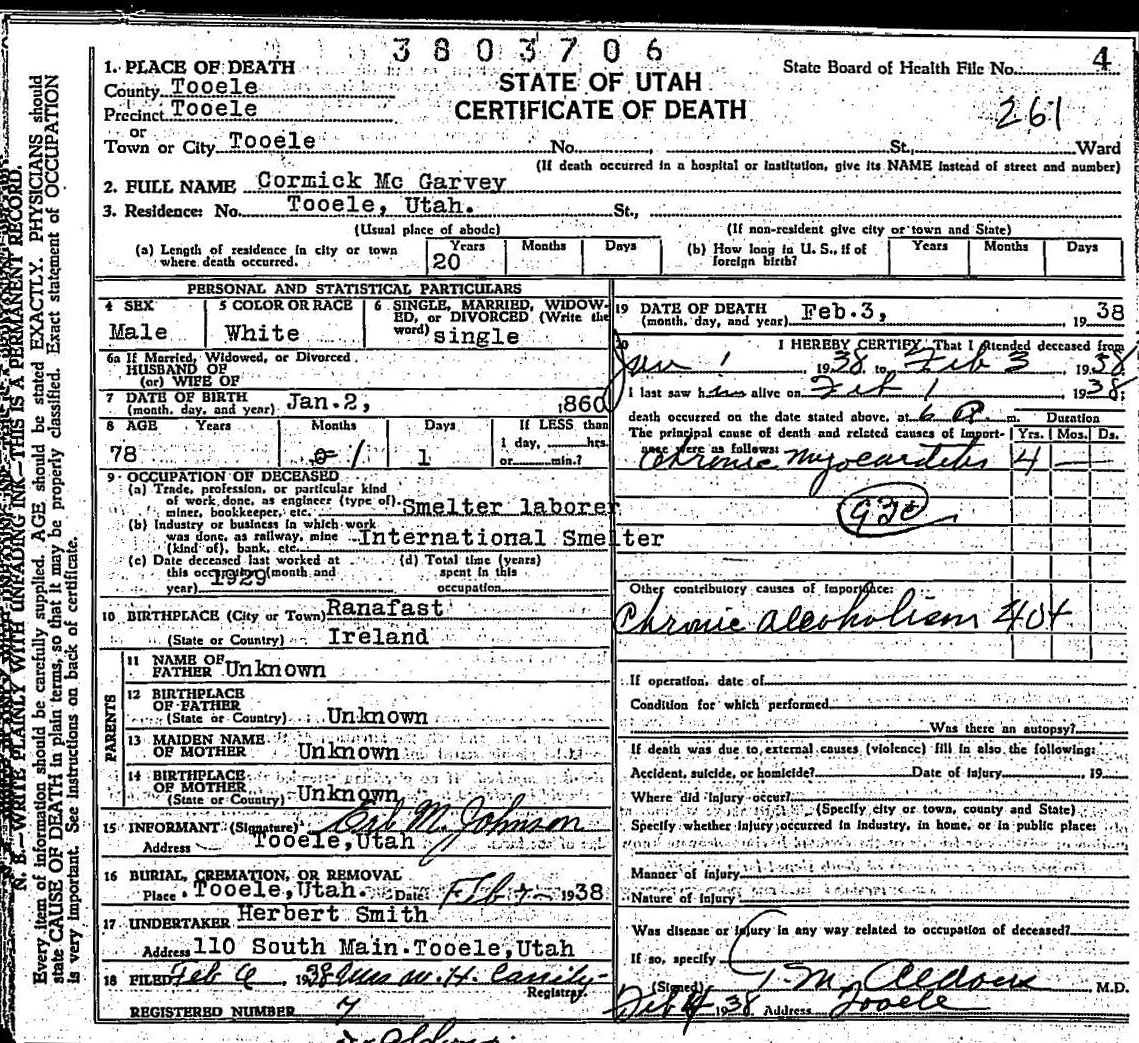 3803706
4
State Board of Health File No.
261
STATE OF UTAH
CERTIFICATE OF DEATH
1. PLACE OF DEATH
County Tooele
Precinct Tooele
or
Town or City Tooele No. St., Ward
(If death occurred in a hospital or institution, give its NAME instead of street and number)
2. FULL NAME Cormick Mc Garvey
3. Residence: No. Tooele, Utah. St.,
(Usual place of abode) (If non-resident give city or town and State)
(a) Length of residence in city or town where death occurred. Years 20 Months Days
(b) How long in U. S., if of foreign birth? Years Months Days
PERSONAL AND STATISTICAL PARTICULARS
4 SEX Male
5 COLOR OR RACE White
6 SINGLE, MARRIED, WIDOWED, or DIVORCED (Write the word) single
6a If Married, Widowed, or Divorced
HUSBAND OF
(or) WIFE OF
7 DATE OF BIRTH
(month, day, and year) Jan.2, 1860
8 AGE Years Months Days If LESS than
78 0 1 1 1 day, hrs.
or min.?
9 OCCUPATION OF DECEASED
(a) Trade, profession, or particular kind
of work done, as engineer (type of)
miner, bookkeeper, etc. Smelter laborer
(b) Industry or business in which work
was done, as railway, mine
(kind of), bank, etc. International Smelter
(c) Date deceased last worked at
this occupation (month and
year) 1929
(d) Total time (years)
spent in this
occupation
10 BIRTHPLACE (City or Town) Ranafast
(State or Country) Ireland
PARENTS
11 NAME OF
FATHER Unknown
12 BIRTHPLACE
OF FATHER
(State or Country) Unknown
13 MAIDEN NAME
OF MOTHER Unknown
14 BIRTHPLACE
OF MOTHER
(State or Country) Unknown
15 INFORMANT (Signature) M. Johnson
Address Tooele, Utah
16 BURIAL, CREMATION, OR REMOVAL
Place Tooele, Utah. Date Feb 1938
17 UNDERTAKER Herbert Smith
Address 110 South Main. Tooele, Utah
18 FILED Feb 1938 Mrs W. H. Cassity
Registrar.
REGISTERED NUMBER 7
19 DATE OF DEATH
(month, day, and year) Feb.3, 19 38
20 I HEREBY CERTIFY, That I attended deceased from
Jan 1, 1938, to Feb 3, 1938.
I last saw him alive on Feb 1 1938;
death occurred on the date stated above, at 6 P. m. Duration
The principal cause of death and related causes of importance were as follows: Yrs. Mos. Ds.
Chronic Myocarditis 4 —
Other contributory causes of importance:
Chronic alcoholism 40+
If operation, date of
Condition for which performed
Was there an autopsy?
If death was due to external causes (violence) fill in also the following:
Accident, suicide, or homicide? Date of injury , 19
Where did injury occur?
(Specify city or town, county and State)
Specify whether injury occurred in industry, in home, or in public place:
Manner of injury
Nature of injury
Was disease or injury in any way related to occupation of deceased?
If so, specify
(Signed) T. M. Aldous M.D.
Feb 4 1938 Address Tooele
N. B.—WRITE PLAINLY WITH UNFADING INK—THIS IS A PERMANENT RECORD.
Every item of information should be carefully supplied. AGE should be stated EXACTLY. PHYSICIANS should
state CAUSE OF DEATH in plain terms, so that it may be properly classified. Exact statement of OCCUPATION
is very important. See instructions on back of certificate.